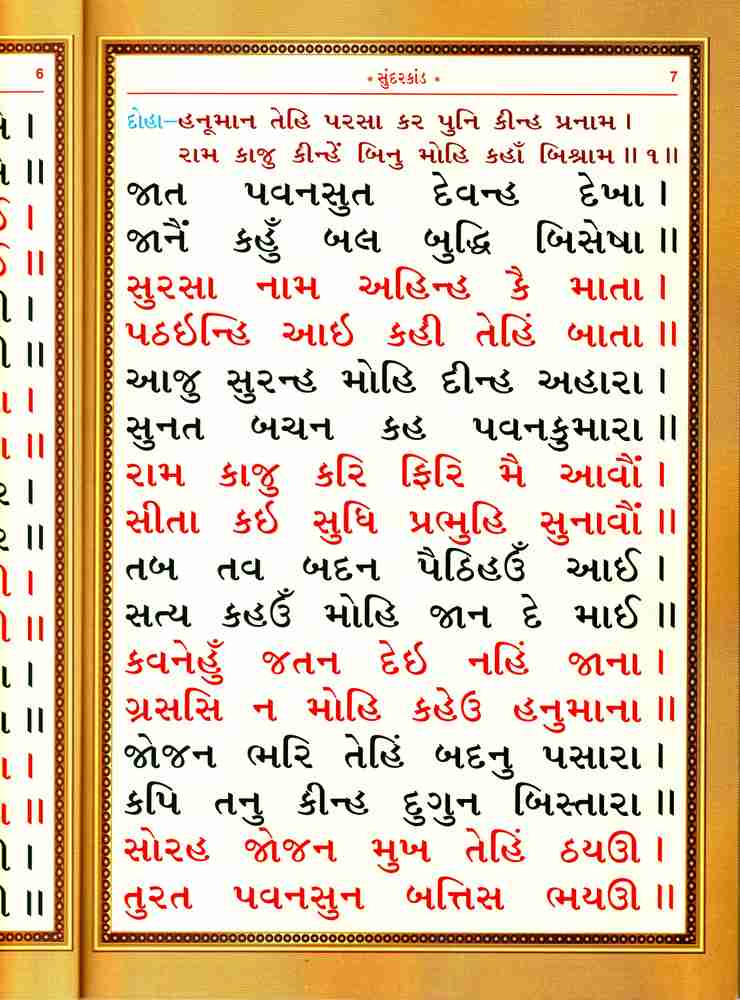 6
* સુંદરકાંડ *
7
દોહા–હનૂમાન તેહિ પરસા કર પુનિ કીન્હ પ્રનામ ।
રામ કાજુ કીન્હેં બિનુ મોહિ કહાઁ બિશ્રામ ॥ ૧ ॥
જાત પવનસુત દેવન્હ દેખા ।
જાનૈં કહુઁ બલ બુદ્ધિ બિસેષા ॥
સુરસા નામ અહિન્હ કૈ માતા ।
પઠઇન્હિ આઇ કહી તેહિં બાતા ॥
આજુ સુરન્હ મોહિ દીન્હ અહારા ।
સુનત બચન કહ પવનકુમારા ॥
રામ કાજુ કરિ ફિરિ મૈ આવૌં ।
સીતા કઇ સુધિ પ્રભુહિ સુનાવૌં ॥
તબ તવ બદન પૈઠિહઉઁ આઈ ।
સત્ય કહઉઁ મોહિ જાન દે માઈ ॥
કવનેહુઁ જતન દેઇ નહિં જાના ।
ગ્રસસિ ન મોહિ કહેઉ હનુમાના ॥
જોજન ભરિ તેહિં બદનુ પસારા ।
કપિ તનુ કીન્હ દુગુન બિસ્તારા ॥
સોરહ જોજન મુખ તેહિં ઠયઊ ।
તુરત પવનસુન બત્તિસ ભયઊ ॥